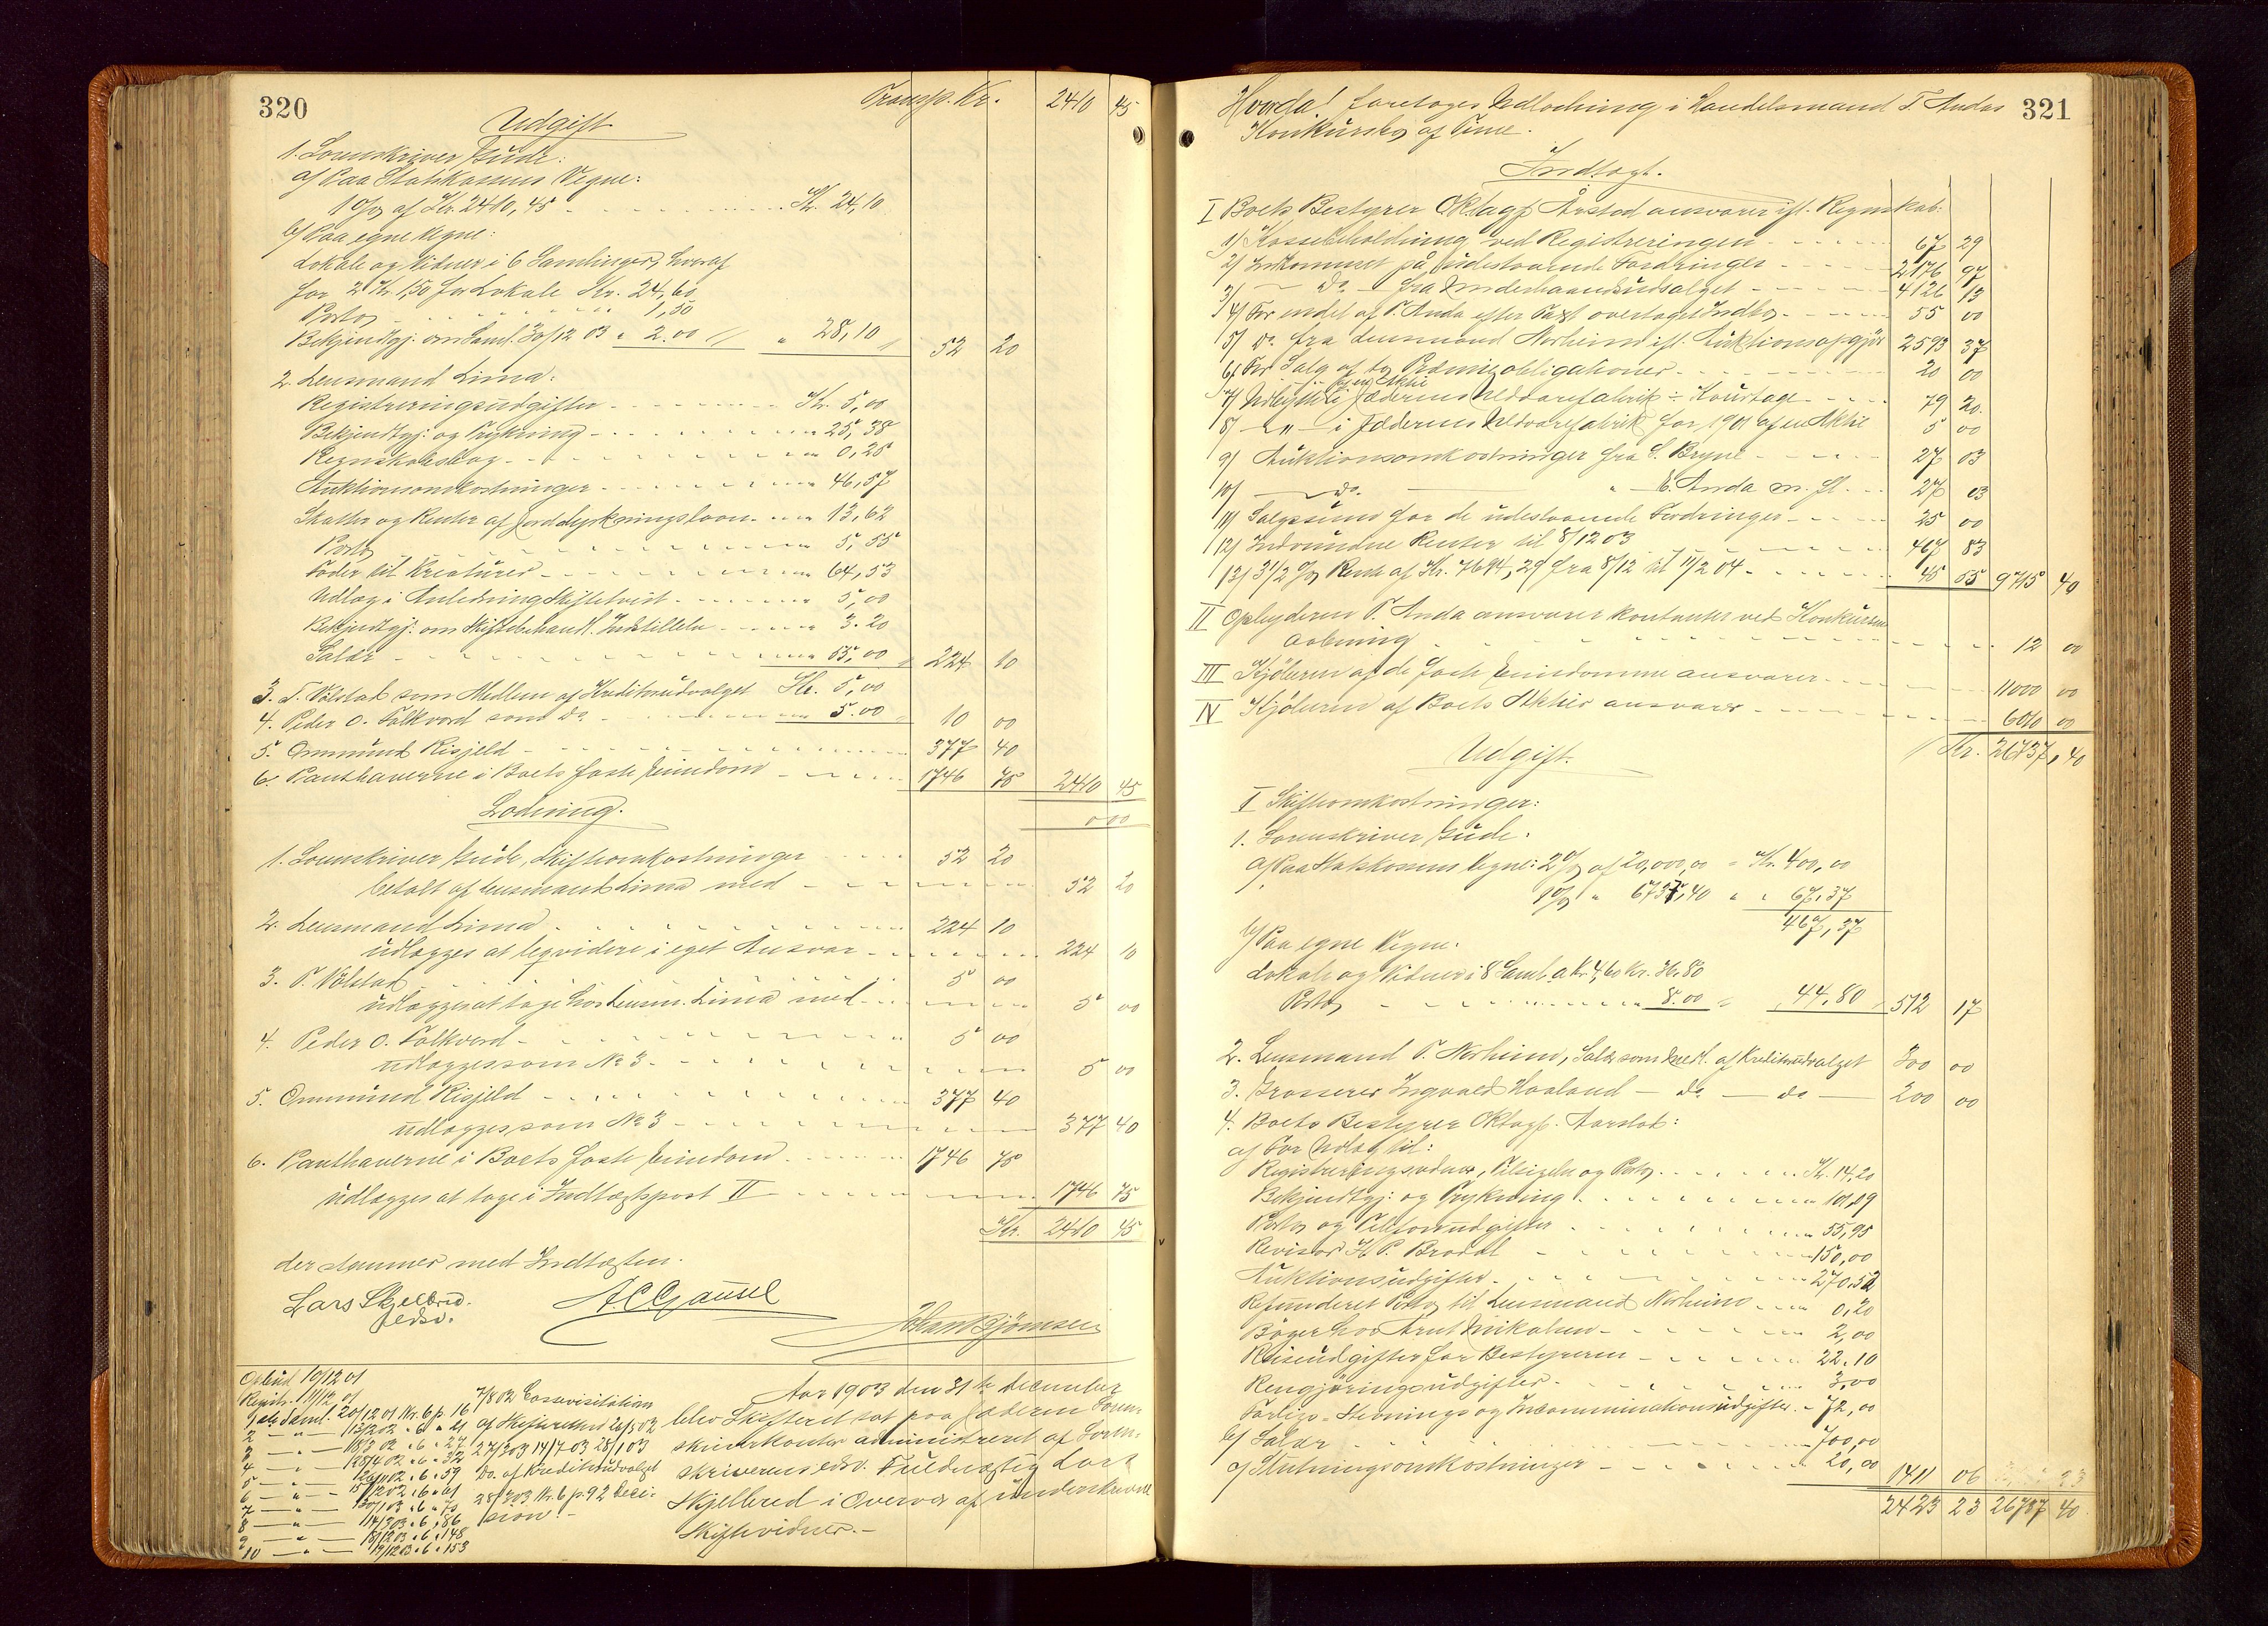 320
Transp. Kr. 2410 45
Udgift
1. Sorenskriver Gude:
a) Paa Statskassens Vegne:
1 % af Kr. 2410,45 Kr. 24,10
b) Paa egne Vegne:
Lokale og Vidner i 6 Samlinger, hvoraf
for 2 Kr. 1,50 for Lokale Kr. 24,60
Porto 1,50
Bekjendtgj. om Saml. 30/12 03 " 2.00 " 28,10 52 20
2. Lensmand Lima:
Registreringsudgifter Kr. 5,00
Bekjendtgj. og Trykning " 25,38
Regnskabsbog " 0,25
Auktionsomkostninger " 46,57
Skatter og Renter af Jorddyrkningslaan " 13,62
Porto " 5,55
Foder til Kreaturer " 64,53
Udlæg i Anledning Skiftetvist " 5,00
Bekjendtgj. om Skiftebehandl. Indstillelse " 3.20
Salær " 55,00 224 10
3. T. Vølstad som Medlem af Kreditorudvalget Kr. 5,00
4. Peder O. Folkvord som do " 5.00 10 00
5. Ommund Risjeld 377 40
6. Panthaverne i Boets faste Eiendom 1746 75 2410 45
000
Lodning.
1. Sorenskriver Gude, Skifteomkostninger 52 20
betalt af Lensmand Lima med 52 20
2. Lensmand Lima 224 10
udlægges at liqvidere i eget Ansvar 224 10
3. T. Vølstad 5 00
udlægges at tage hos Lensm. Lima med 5 00
4. Peder O. Folkvord 5 00
udlægges som No 3 5 00
5. Ommund Risjeld 377 40
udlægges som No 3 377 40
6. Panthaverne i Boets faste Eiendom 1746 75
udlægges at tage i Indtægtspost II 1746 75
Kr. 2410 45
der stemmer med Indtægten.
Lars Skjelbred
edsv.
A C Gausel
Johan Bjørnsen
Opbud 10/12 01
Registr. 11/12 01
1ste Saml. 20/12 01 Nr. 6 p. 16
2 — " — 113/2 02 " 6 " 21
3 — " — 118/3 02 " 6 " 27
4 — " — 128/4 02 " 6 " 32
5 — " — 6 " 59
6 — " — 02 " 6 " 61
7 — " — 03 " 6 " 70
8 — " — 03 " 6 " 86
9 — " — 03 " 6 " 148
10 — " — 19/12 03 " 6 " 153
7/8 02 Cassevisitation
af Skifteretten
27/3 03 14/7 03 28/1 03
Do. af Kreditorudvalget
28/3 03 Nr. 6 p. 92 Deci-
sion.
Aar 1903 den 31te December
blev Skifteret sat paa Jæderens Soren-
skriverkontor administreret af Soren-
skriverens edsv. Fuldmægtig Lars
Skjelbred i Overvær af underskrevne
Skiftevidner.
321
Hvorda! foretages Udlodning i Handelsmand T. Andas
Konkursbo af Time.
Indtægt.
I Boets Bestyrer O K Tagf Årstad ansvarer ifl. Regnskab:
1) Kassebeholdning ved Registreringen 67 29
2) Indkommet på udestaaende Fordringer 2176 97
3) — Do — fra Underhaandsudsalget 4126 13
4) For endel af T. Anda efter Taxt overtaget Indbo 55 00
5) Do. fra Lensmand Norheim ifl. Auktionsopgjør 2593 37
6) For Salg af to Præmieobligationer 20 00
7) Udbytte i Jæderens Uldvarefabrik ÷ Kourtage 79 20
af en Aktie
8) — " — i Jæderens Uldvarefabrik for 1901 af en Aktie 5 00
9) Auktionsomkostninger fra S. Bryne 27 03
10) — Do. — " — E. Anda m. fl. 27 03
11) Salgssum for de udestaaende Fordringer 25 00
12) Indvundne Renter til 8/12 03 467 83
13) 3 1/2 % Rente af Kr. 7694,29 fra 8/12 til 11/2 04 45 55 9715 40
II Opbyderen T. Anda ansvarer kontanter ved Konkursens
Aabning 12 00
III Kjøberen af de faste Eiendomme ansvarer 11000 00
IV Kjøberen af Boets Aktier ansvarer 6010 00
Kr. 26737,40
Udgift.
I Skifteomkostninger:
1. Sorenskriver Gude:
a) Paa Statskassens Vegne: 2 % af 20,000,00 = Kr. 400,00
1 % " 6737,40 " " 67,37
467,37
b) Paa egne Vegne:
Lokale og Vidner i 8 Saml. a Kr. 4,60 Kr. 36,80
Porto " 8.00 44,80 512 17
2. Lensmand T. Norheim, Salær som Medl. af Kreditorudvalget 300 00
3. Grosserer Ingvald Haaland — do — do — 200 00
4. Boets Bestyrer O K Tagf. Aarstad:
a) For Udlæg til:
Registreringsvidner, og Porto Kr. 14,20
Bekjendtgj. og Trykning " 101,09
Porto og Telefonudgifter " 55,95
Revisor H. P. Brodal " 150,00
Auktionsudgifter " 270,52
Refunderet Porto til Lensmand Norheim " 0,20
Bøger hos Arnt Mikalsen " 2,00
Reiseudgifter for Bestyreren " 22.10
Rengjøringsudgifter " 3,00
Forligs- Stevnings og Incamminationsudgifter " 72,00
b) Salær " 700,00
c) Slutningsomkostninger " 20,00 1411 06
2423 23 26737 40